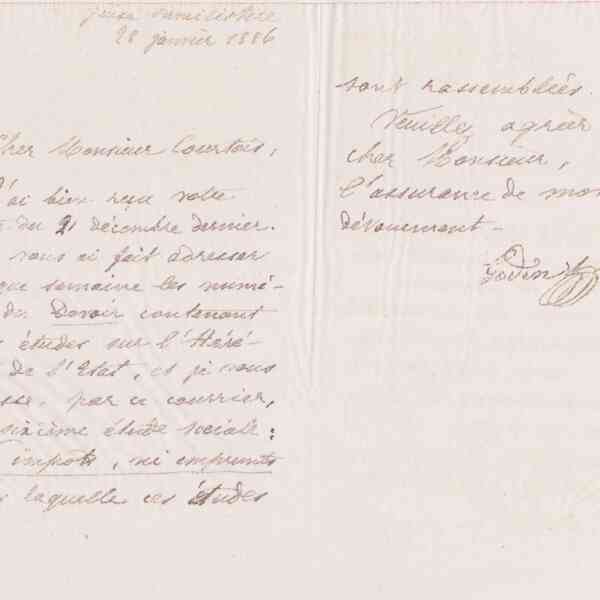 28 janvier 1886
Cher Monsieur Courtois,
J'ai bien reçu votre
du 21 décembre dernier.
vous ai fait adresser
que semaine les numé-
du Devoir contenant
études sur l'Héré-
de l'Etat, et je vous
sse, par ce courrier,
sixième étude sociale :
impôts, ni emprunts
laquelle ces études
sont rassemblées.
Veuillez agréer
cher Monsieur,
l'assurance de mon
dévouement -
Godin